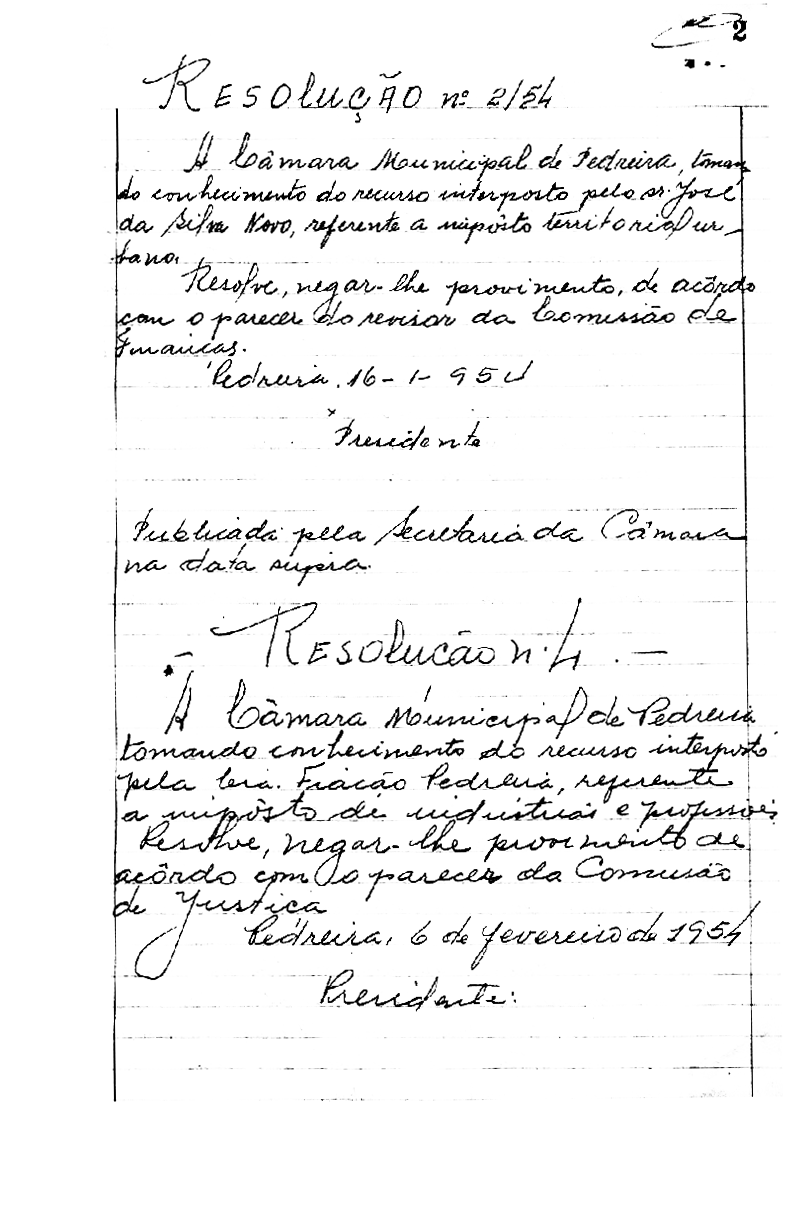 2
RESOLUÇÃO nº 2/54
A Câmara Municipal de Pedreira, toman
do conhecimento do recurso interposto pelo sr. José
da Silva Novo, referente a impôsto territorial ur_
bano.
Resolve, negar-lhe provimento, de acôrdo
com o parecer do revisor da Comissão de
Finanças.
Pedreira, 16-1-954
Presidente
Publicada pela Secretaria da Câmara
na data supra.
- RESOLUCÃO n. 4. -
A Câmara Municipal de Pedreira
tomando conhecimento do recurso interposto
pela Cia. Fiacão Pedreira, referente
a impôsto de industrias e profissões
Resolve, negar-lhe provimento de
acôrdo com o parecer da Comissão
de Justica
Pedreira, 6 de fevereiro de 1954
Presidente: